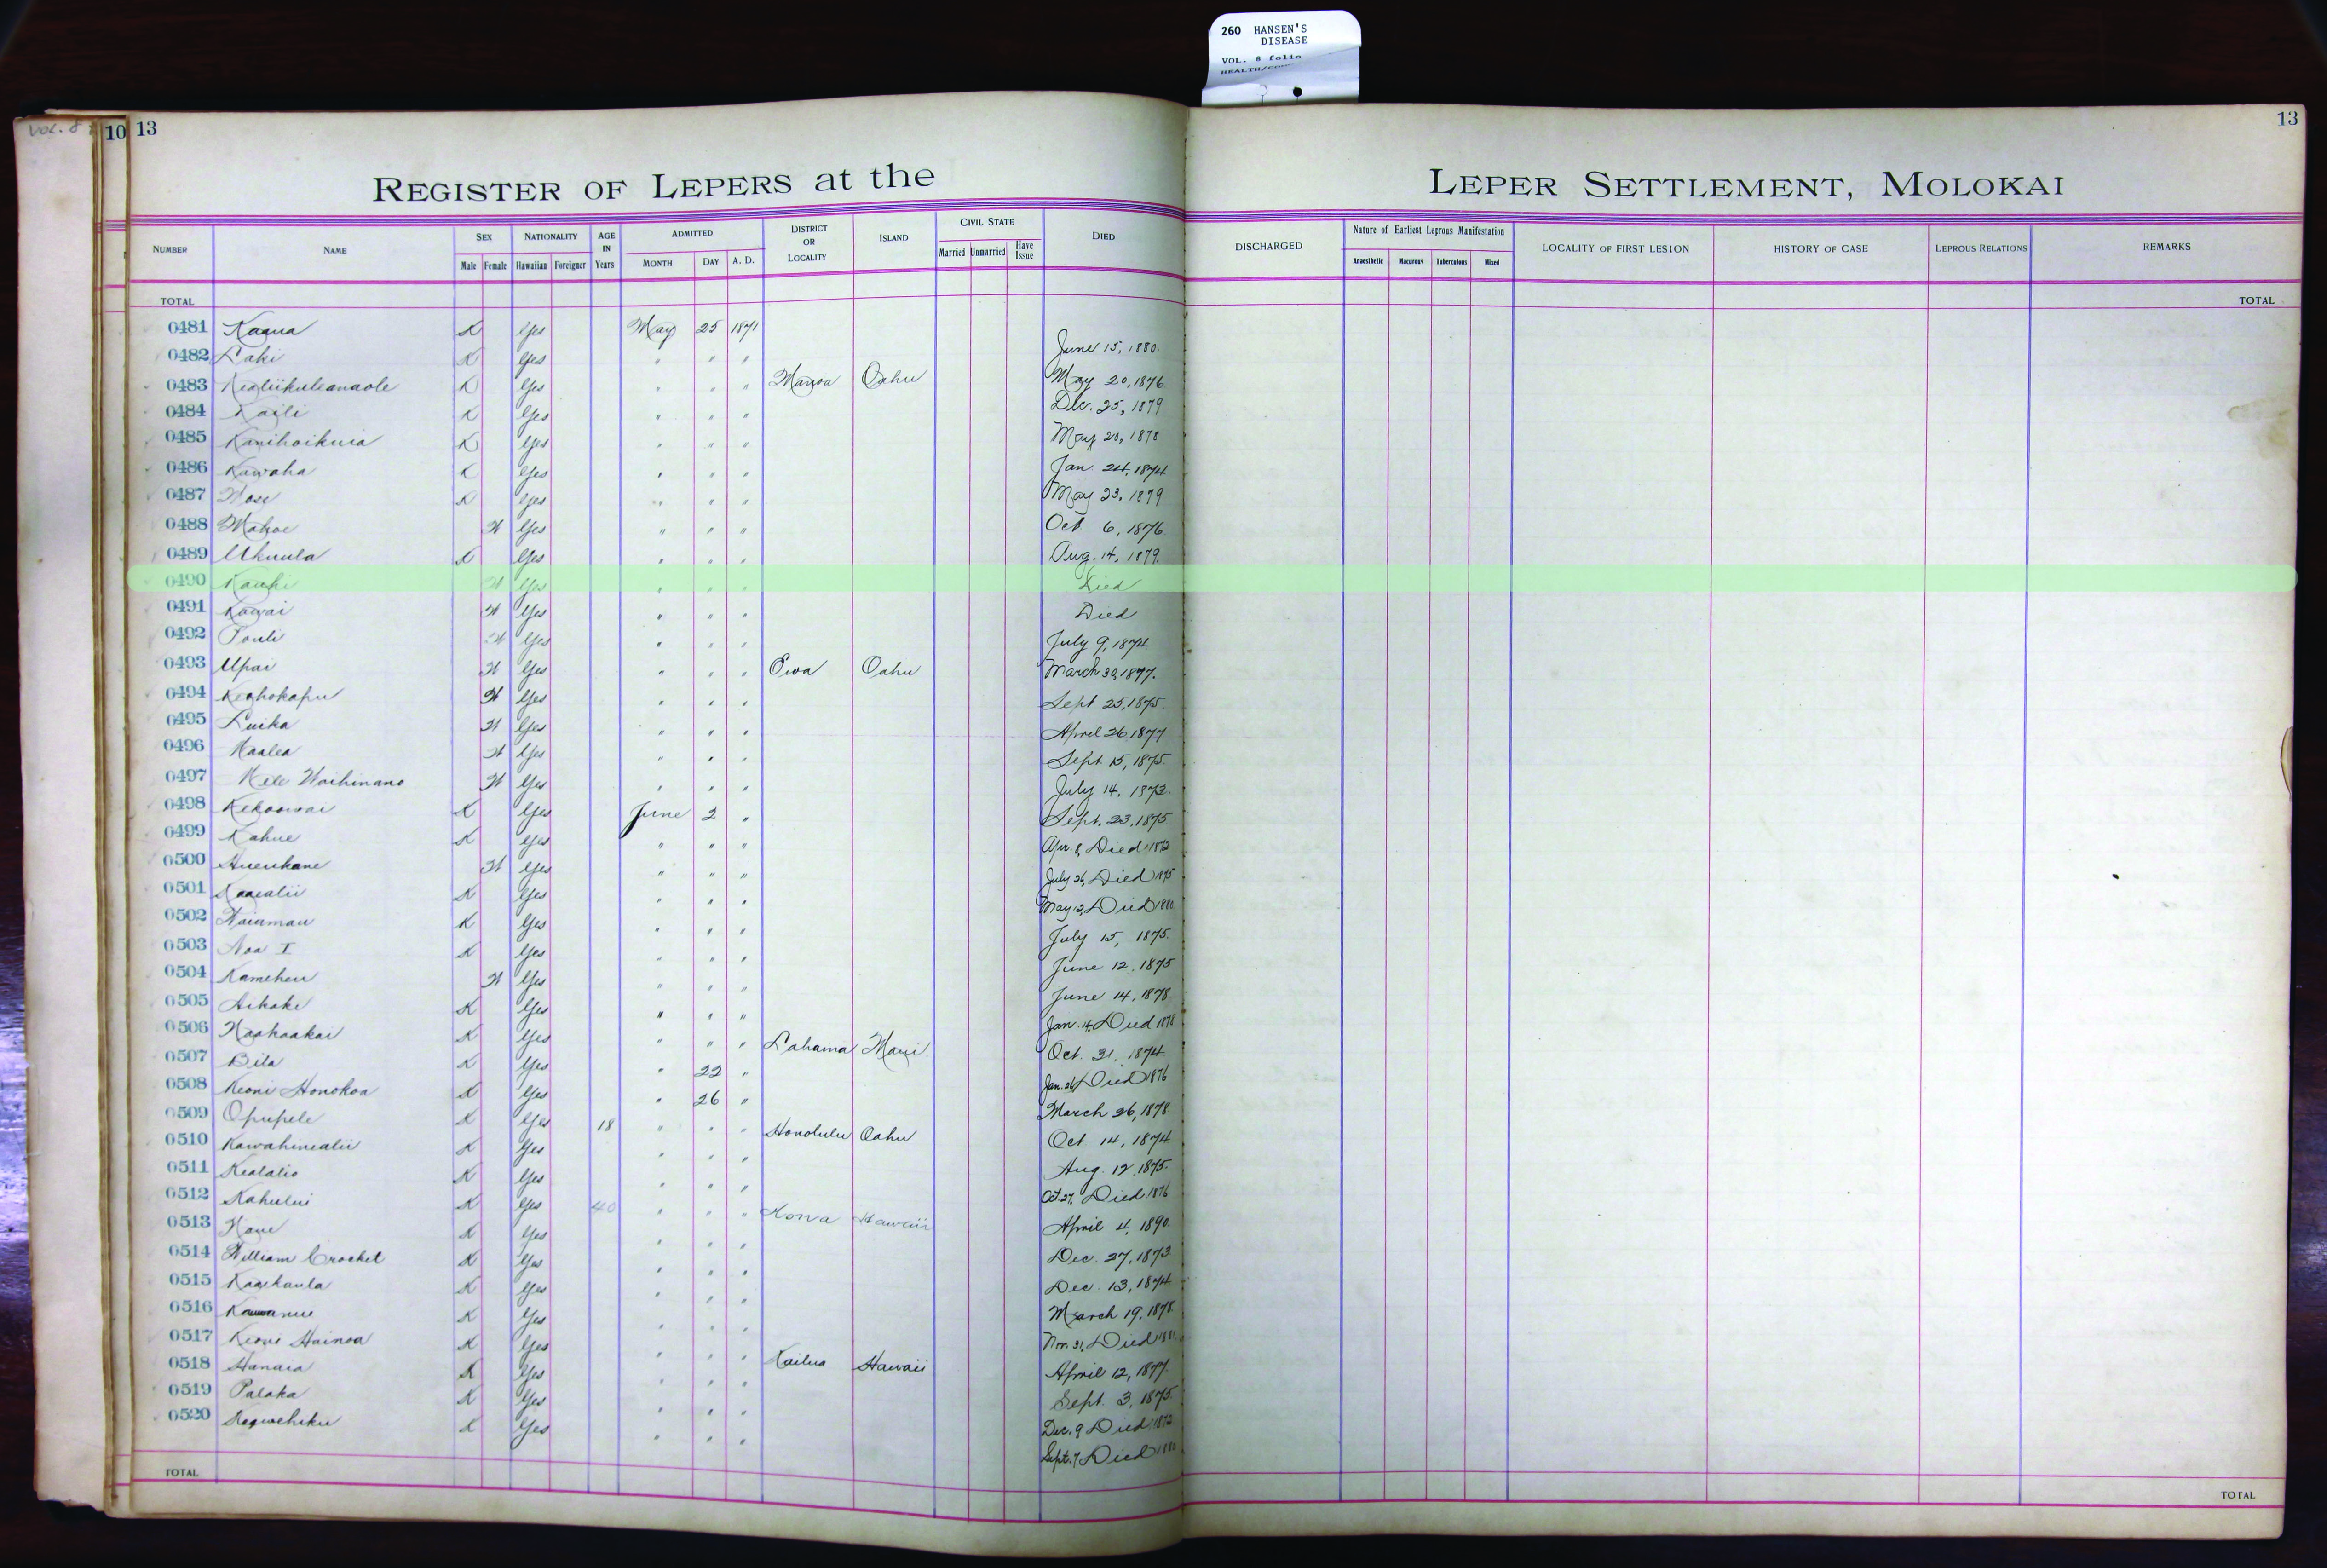 260 HANSEN'S
DISEASE
VOL. 8 folio
VOL. 8
10 13
13
REGISTER OF LEPERS at the LEPER SETTLEMENT, MOLOKAI
NUMBER NAME SEX Male Female NATIONALITY Hawaiian Foreigner AGE IN Years ADMITTED MONTH DAY A. D. DISTRICT OR LOCALITY ISLAND CIVIL STATE Married Unmarried Have Issue DIED DISCHARGED Nature of Earliest Leprous Manifestation Anaesthetic Macurous Tuberculous Mixed LOCALITY OF FIRST LESION HISTORY OF CASE LEPROUS RELATIONS REMARKS
TOTAL TOTAL
0481 Kaaua K Yes May 25 1871
0482 Laki K Yes " " " June 15, 1880.
0483 Kealiikuleanaole K Yes " " " Manoa Oahu May 20, 1876
0484 Kaili K Yes " " " Dec. 25, 1879
0485 Kanihoikuia K Yes " " " May 20, 1878
0486 Kawaha K Yes " " " Jan. 24, 1874
0487 K Yes " " " May 23, 1879
0488 Mahoe W Yes " " " Oct 6, 1876.
0489 Ukuula K Yes " " " Aug. 14, 1879
0490 W Yes " " " Died
0491 Kawai W Yes " " " Died
0492 Pouli W Yes " " " July 9, 1874
0493 Upai W Yes " " " Ewa Oahu March 30, 1877.
0494 Keohokapu W Yes " " " Sept 25, 1875.
0495 Luika W Yes " " " April 26 1877
0496 Maalea W Yes " " " Sept. 15, 1875.
0497 Mele Waihinano W Yes " " " July 14, 1873.
0498 Kekoowai K Yes June 2 " Sept. 23, 1875
0499 Kahue K Yes " " " Apr. 8, Died 1872
0500 Hueukane W Yes " " " July 26, Died 1875
0501 Kaaealii K Yes " " " May 12, Died 1880
0502 Waiamau K Yes " " " July 15, 1875.
0503 Noa I K Yes " " " June 12, 1875
0504 Kameheu W Yes " " " June 14, 1878
0505 Aikake K Yes " " " Jan. 14, Died 1878
0506 Naohaakai K Yes " " " Lahaina Maui Oct. 31, 1874
0507 Bila K Yes " 22 " Jan. 26, Died 1876
0508 Keoni Honokoa K Yes " 26 " March 26, 1878
0509 Opupele K Yes 18 " " " Honolulu Oahu Oct 14, 1874
0510 Kawahinealii K Yes " " " Aug. 12, 1875.
0511 Kealalio K Yes " " " Oct. 27, Died 1876
0512 Kahului K Yes 40 " " " Kona Hawaii April 4, 1890.
0513 K Yes " " " Dec. 27, 1873
0514 William Crocket K Yes " " " Dec. 13, 1874
0515 Kaaikaula K Yes " " " March 19, 1878
0516 K Yes " " " Nov. 31, Died
0517 Keoni Hainoa K Yes " " " Kailua Hawaii April 12, 1877.
0518 Hanaia K Yes " " " Sept. 3, 1875
0519 Palaka K Yes " " " Dec. 9 Died 1872
0520 K Yes " " " Sept. 7 Died
TOTAL TOTAL